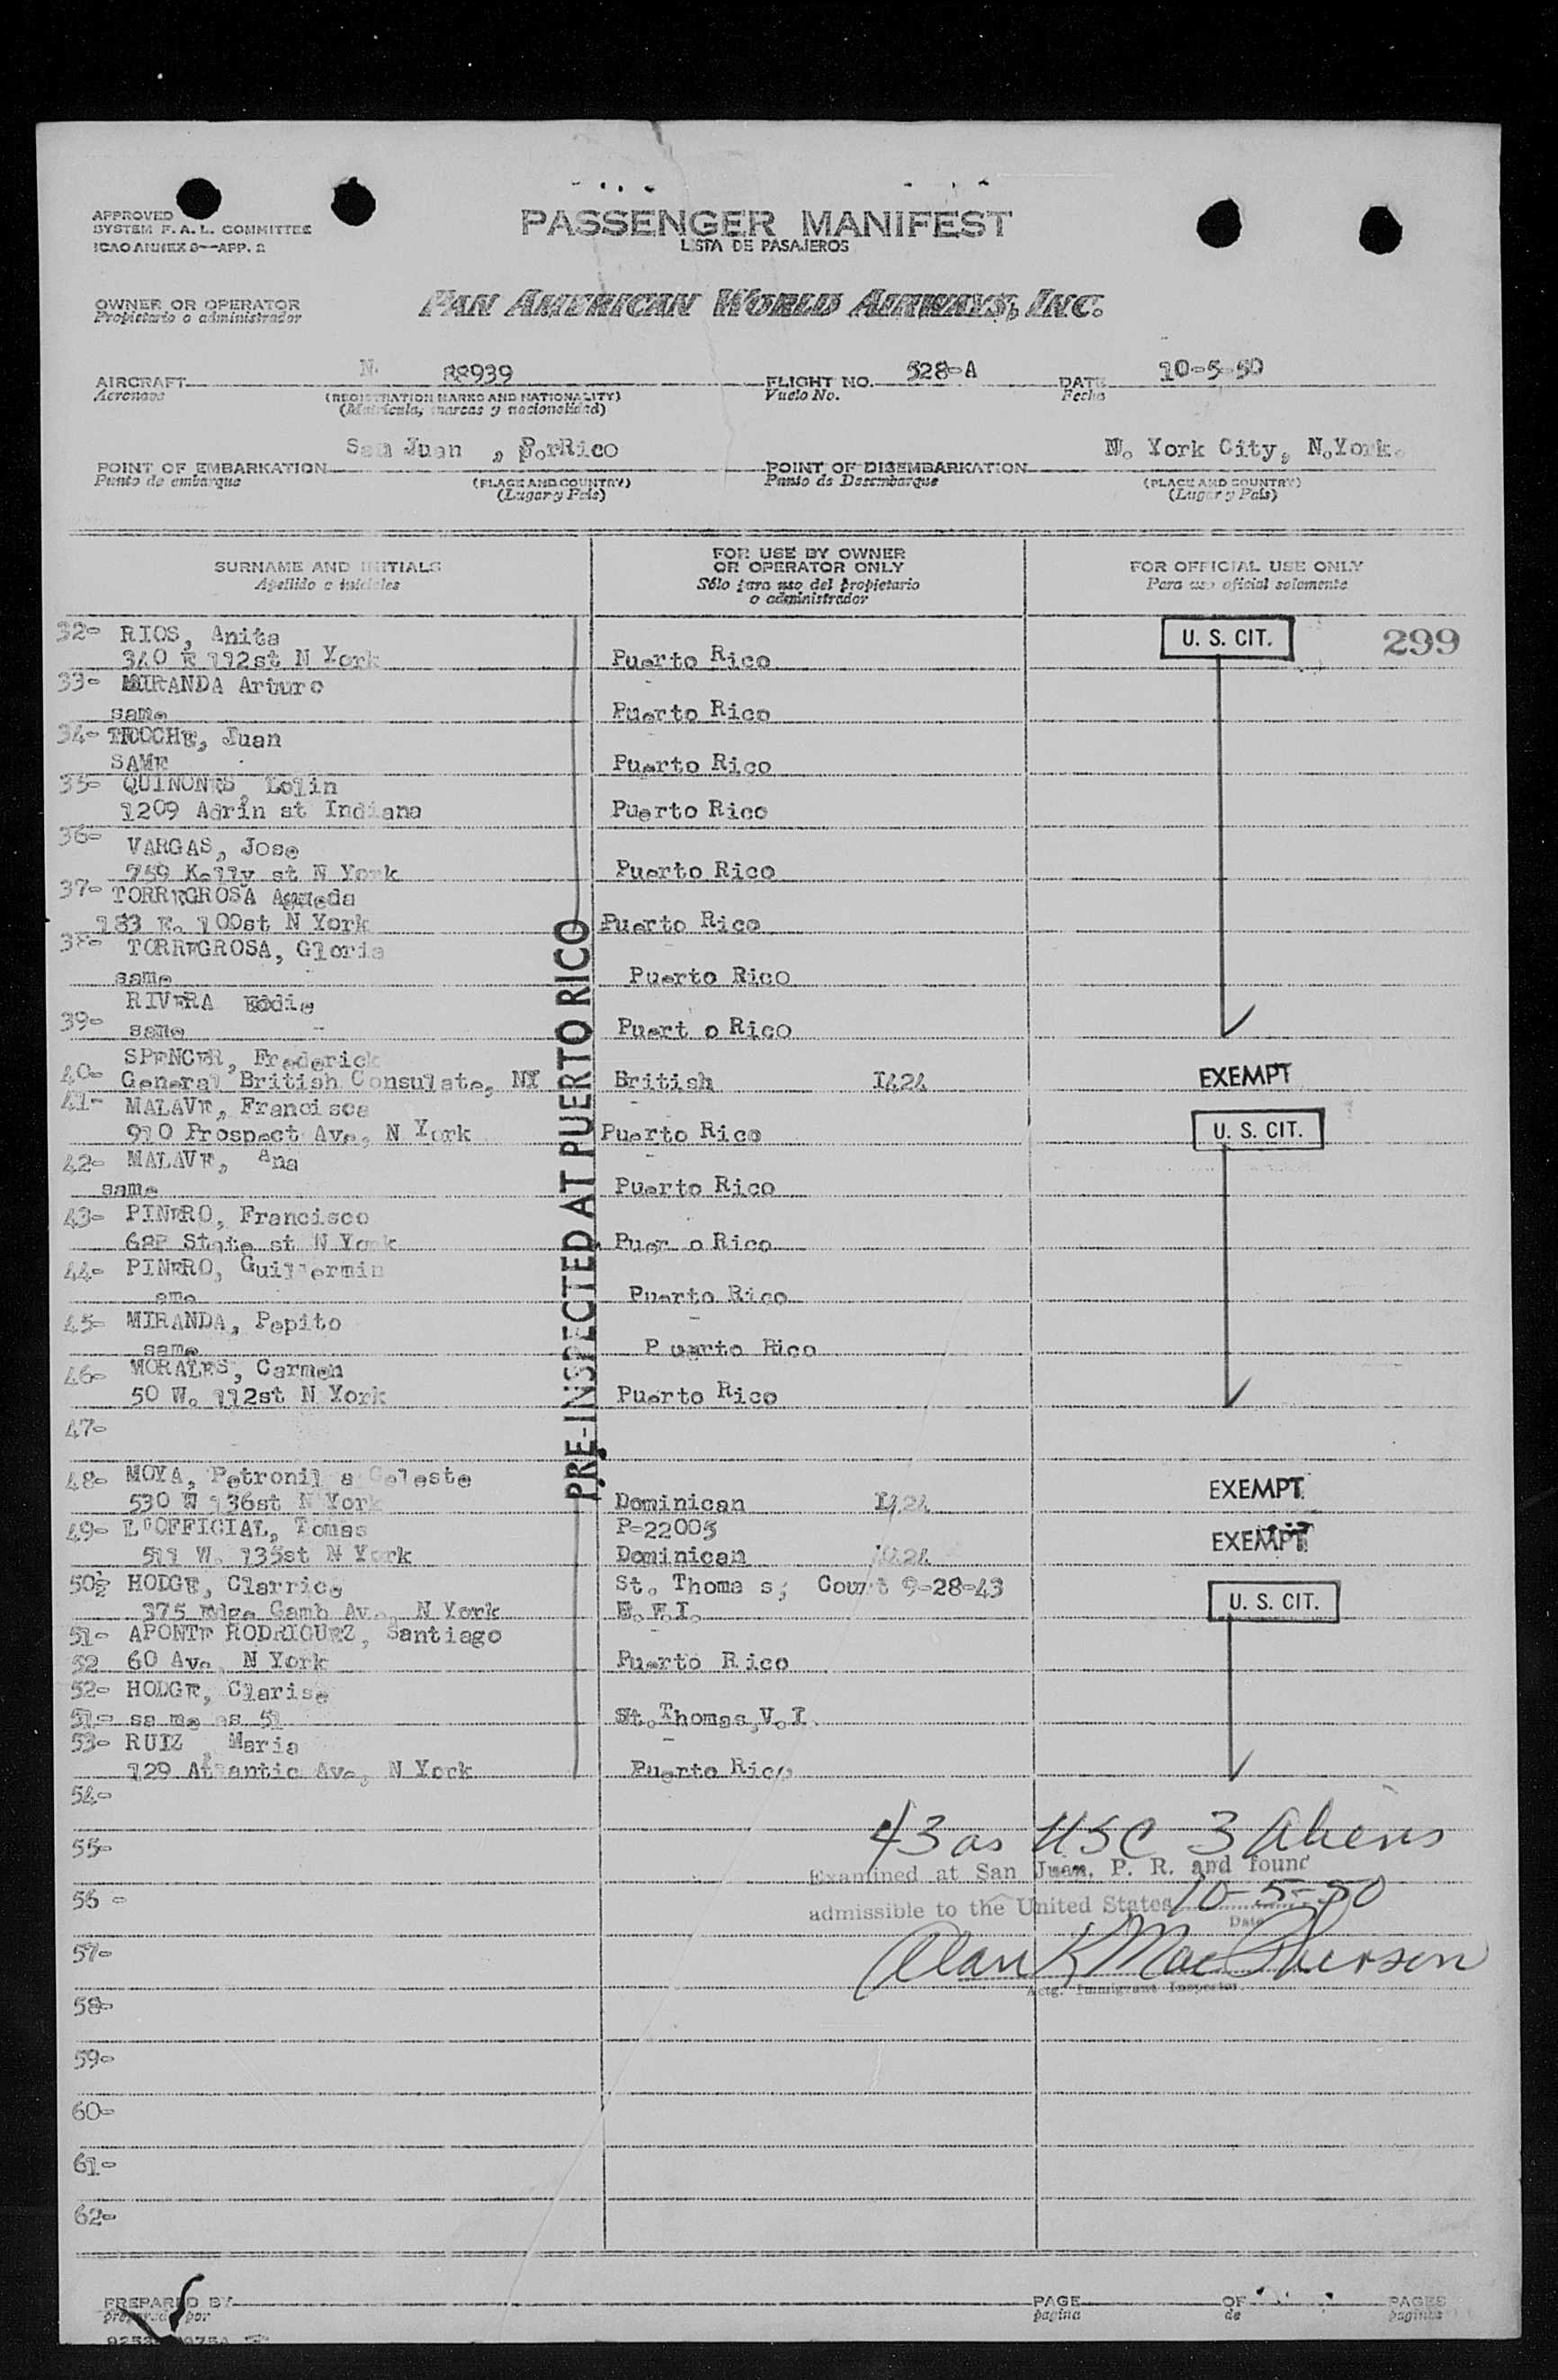 APPROVED
SYSTEM F. A. L. COMMITTEE
ICAO ANNEX 9—APP. 2
PASSENGER MANIFEST
LISTA DE PASAJEROS
OWNER OR OPERATOR
Propietario o administrador
PAN AMERICAN WORLD AIRWAYS, INC.
AIRCRAFT N. 88939 FLIGHT NO. 528-A DATE 10-5-50
Aeronave (REGISTRATION MARKS AND NATIONALITY) Vuelo No. Fecha
(Matrícula, marcas y nacionalidad)
POINT OF EMBARKATION San Juan , P.orRico POINT OF DISEMBARKATION N. York City, N.York.
Punto de embarque (PLACE AND COUNTRY) Punto de Desembarque (PLACE AND COUNTRY)
(Lugar y País) (Lugar y País)
SURNAME AND INITIALS FOR USE BY OWNER OR OPERATOR ONLY FOR OFFICIAL USE ONLY
Apellido e iniciales Sólo para uso del propietario o administrador Para uso oficial solamente
299
32- RIOS, Anita U. S. CIT.
340 E 112st N York Puerto Rico
33- MIRANDA Arturo
same Puerto Rico
34- TROCHE, Juan
SAME Puerto Rico
35- QUINONES, Lolin
1209 Adrin st Indiana Puerto Rico
36- VARGAS, Jose
759 Kelly st N York Puerto Rico
37- TORREGROSA Agueda
183 E. 100st N York Puerto Rico
38- TORREGROSA, Gloria
same Puerto Rico
RIVERA Eddie
39- same Puert o Rico
SPENCER, Frederick
40- General British Consulate, NY British I424 EXEMPT
41- MALAVE, Francisca
910 Prospect Ave, N York Puerto Rico U. S. CIT.
42- MALAVE, Ana
same Puerto Rico
43- PINERO, Francisco
State st N York Puer o Rico
44- PINERO, Guillermin
ame Puerto Rico
45- MIRANDA, Pepito
same P uerto Rico
46- MORALES, Carmen
50 W. 112st N York Puerto Rico
47-
48- MOYA, Petronil a Celeste
530 W 136st N York Dominican I424 EXEMPT
49- L'OFFICIAL, Tomas P-22005
511 W. 135st N York Dominican I424 EXEMPT
50- HODGE, Clarrice St. Thoma s; Court 9-28-43
375 Edge Camb Ave, N York U. S. CIT.
51- APONTE RODRIGUEZ, Santiago
52 60 Ave N York Puerto Rico
52- HODGE, Clarise
51- sa me as 51 St.Thomas,V.I.
53- RUIZ , Maria
129 Atlantic Ave, N York Puerto Rico
PRE-INSPECTED AT PUERTO RICO
54-
55- 43 as USC 3 Aliens
Examined at San Juan, P. R. and found
56 - admissible to the United States 10-5-50
Date
57- Alan K MacPherson
Actg. Immigrant Inspector.
58-
59-
60-
61-
62-
PREPARED BY PAGE OF PAGES
preparado por pagina de paginas